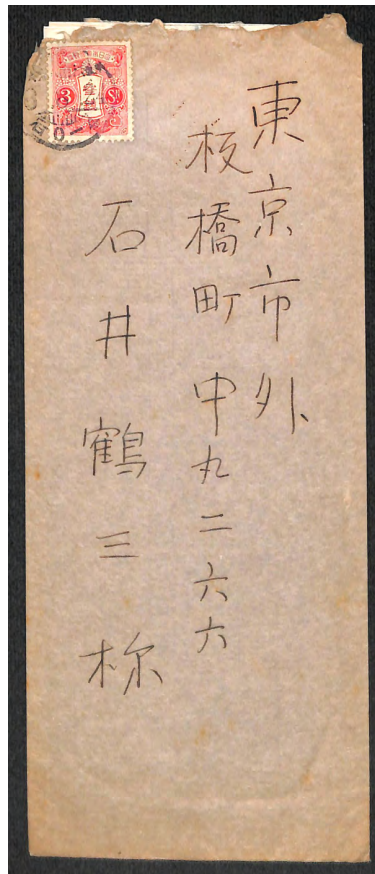 東京市外
板橋町中丸二六六
石井鶴三様
3 Sn